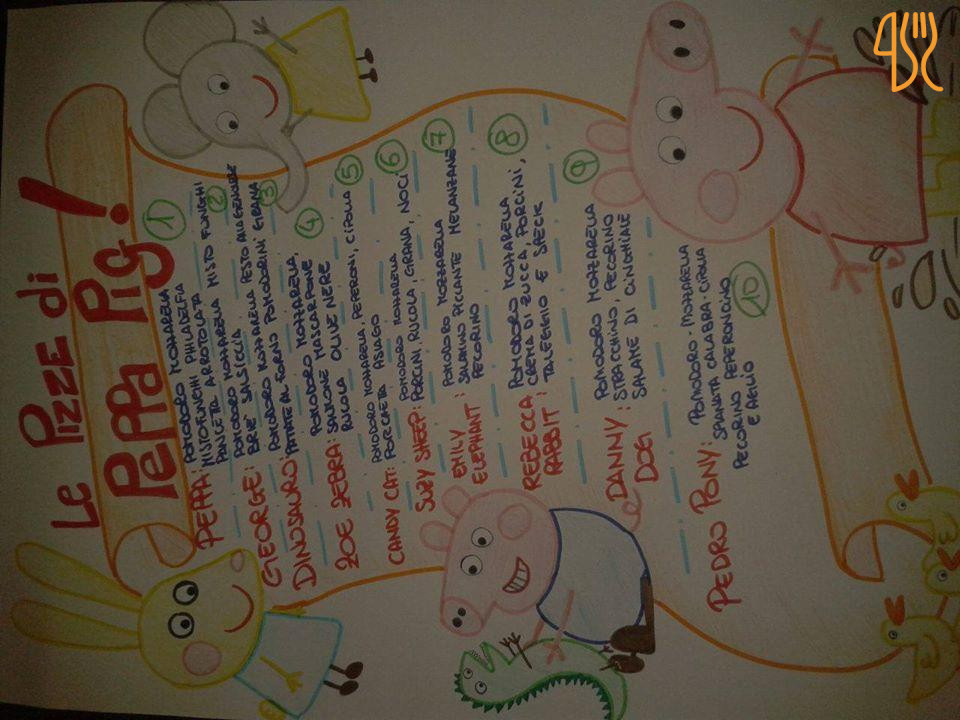 Le Pizze di
Peppa Pig!
PEPPA: POMODORO MOZZARELLA
MISTO FUNGHI PHILADELFIA
PANCETA ARROTOLATA
1
GEORGE: POMODORO MOZZARELLA MISTO FUNGHI
BRIE' SALSICCIA
2
DINOSAURO: POMODORO MOZZARELLA PESTO ALLA GENOVESE
PATATE AL FORNO POMODORINI GRANA
3
ZOE ZEBRA: POMODORO MOZZARELLA,
SALMONE MASCARPONE
RUCOLA OLIVE NERE
4
CANDY CAT: POMODORO MOZZARELLA, PEPERONI, CIPOLLA
PORCHETA ASIAGO
5
SUZY SHEEP: POMODORO MOZZARELLA
PORCINI, RUCOLA, GRANA, NOCI
6
EMILY
ELEPHANT: POMODORO MOZZARELLA
SALAMINO PICCANTE MELANZANE
PECORINO
7
REBECCA
RABBIT: POMODORO MOZZARELLA
CREMA DI ZUCCA, PORCINI,
TALEGGIO E SPECK
8
DANNY
DOG: POMODORO MOZZARELLA
STRACCHINO, PECORINO
SALAME DI CINGHIALE
9
PEDRO PONY: POMODORO MOZZARELLA
SPIANATA CALABRA CIPOLLA
PECORINO PEPERONCINO
E AGLIO
10